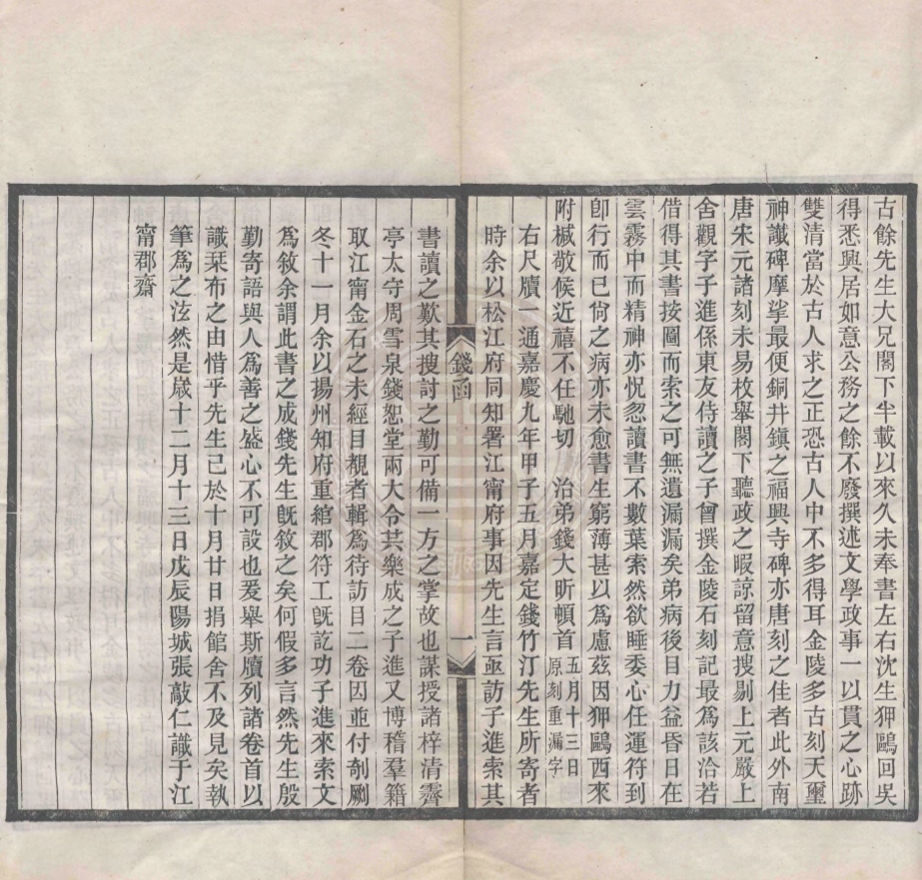 古餘先生大兄閣下半載以來久未奉書左右沈生狎鷗回吳
得悉興居如意公務之餘不廢撰述文學政事一以貫之心跡
雙清當於古人求之正恐古人中不多得耳金陵多古刻天璽
神讖碑摩挲最便銅井鎮之福興寺碑亦唐刻之佳者此外南
唐宋元諸刻未易枚舉閣下聽政之暇諒留意搜剔上元嚴上
舍觀字子進係東友侍讀之子曾撰金陵石刻記最為該洽若
借得其書按圖而索之可無遺漏漏矣弟病後目力益昏日在
雲霧中而精神亦怳忽讀書不數葉索然欲睡委心任運符到
卽行而已尙之病亦未愈書生窮薄甚以為慮茲因狎鷗西來
附椷敬候近禧不任馳切 治弟錢大昕頓首 五月十三日 原刻重漏字
右尺牘一通嘉慶九年甲子五月嘉定錢竹汀先生所寄者
時余以松江府同知署江甯府事因先生言亟訪子進索其
錢函 一
書讀之歎其搜討之勤可備一方之掌故也謀授諸梓清霽
亭太守周雪泉錢恕堂兩大令共樂成之子進又博稽羣籍
取江甯金石之未經目覩者輯爲待訪目二卷因並付剞劂
冬十一月余以揚州知府重綰郡符工旣訖功子進來索文
爲敘余謂此書之成錢先生旣敘之矣何假多言然先生殷
勤寄語與人爲善之盛心不可設也爰舉斯牘列諸卷首以
識栞布之由惜乎先生已於十月廿日捐館舍不及見矣執
筆爲之泫然是嵗十二月十三日戊辰陽城張敦仁識于江
甯郡齋